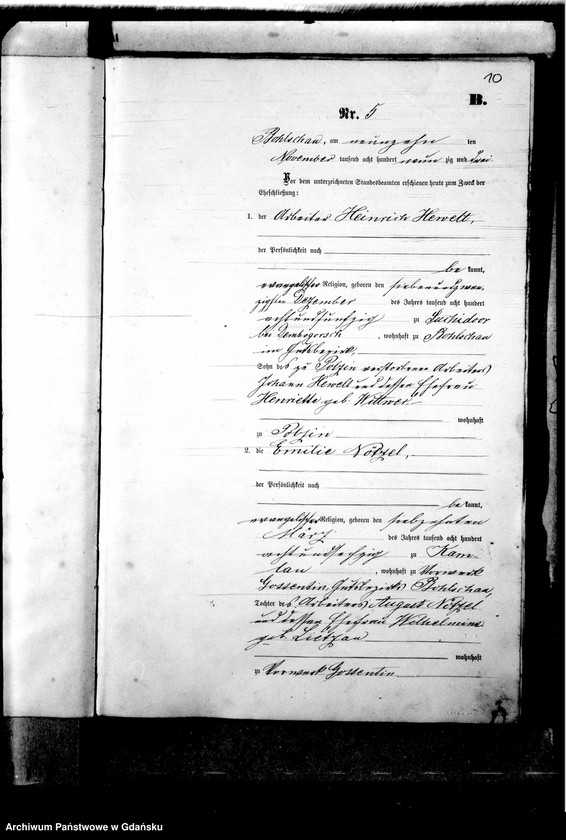 10
B.
Nr. 5
Bohlschau, am neunzehn ten
November tausend acht hundert neun zig und zwei.
Vor dem unterzeichneten Standesbeamten erschienen heute zum Zweck der
Eheschließung:
1. der Arbeiter Heinrich Hewelt,
der Persönlichkeit nach
be kannt,
evangelischer Religion, geboren den siebenundzwan-
zigsten Dezember des Jahres tausend acht hundert
achtundfünfzig zu
bei Dembogorsch, wohnhaft zu Bohlschau
im Gutsbezirk,
Sohn des zu Polzin verstorbenen Arbeiters
Johann Hewelt und dessen Ehefrau
Henriette geb. Wittwer
wohnhaft
zu Polzin
2. die Emilie Nötzel,
der Persönlichkeit nach
be kannt,
evangelischer Religion, geboren den siebzehnten
März des Jahres tausend acht hundert
achtundsechzig zu Kam-
lau, wohnhaft zu Vorwerk
Gossentin, Gutsbezirks Bohlschau,
Tochter des Arbeiters August Nötzel
und dessen Ehefrau Wilhelmine
geb. Lietzau
wohnhaft
zu Vorwerk Gossentin
Archiwum Państwowe w Gdańsku